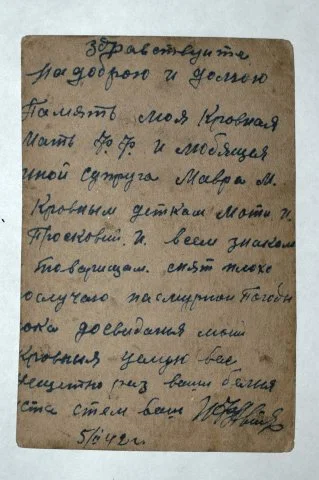 Здравствуите
на доброю и долгою
Память моя Кровная
Мать Ф.Ф. и любящея
мной супруга Мавра М.
Кровным деткам Моти И.
Просковии И. всем знаком
товарищам. снят плохо
ослучаю пасмурной Погоды
пока досвиданья мои
Кровныя целую вас
нещетно раз ваши белыя
уста стем ваш
5/II 42 г.